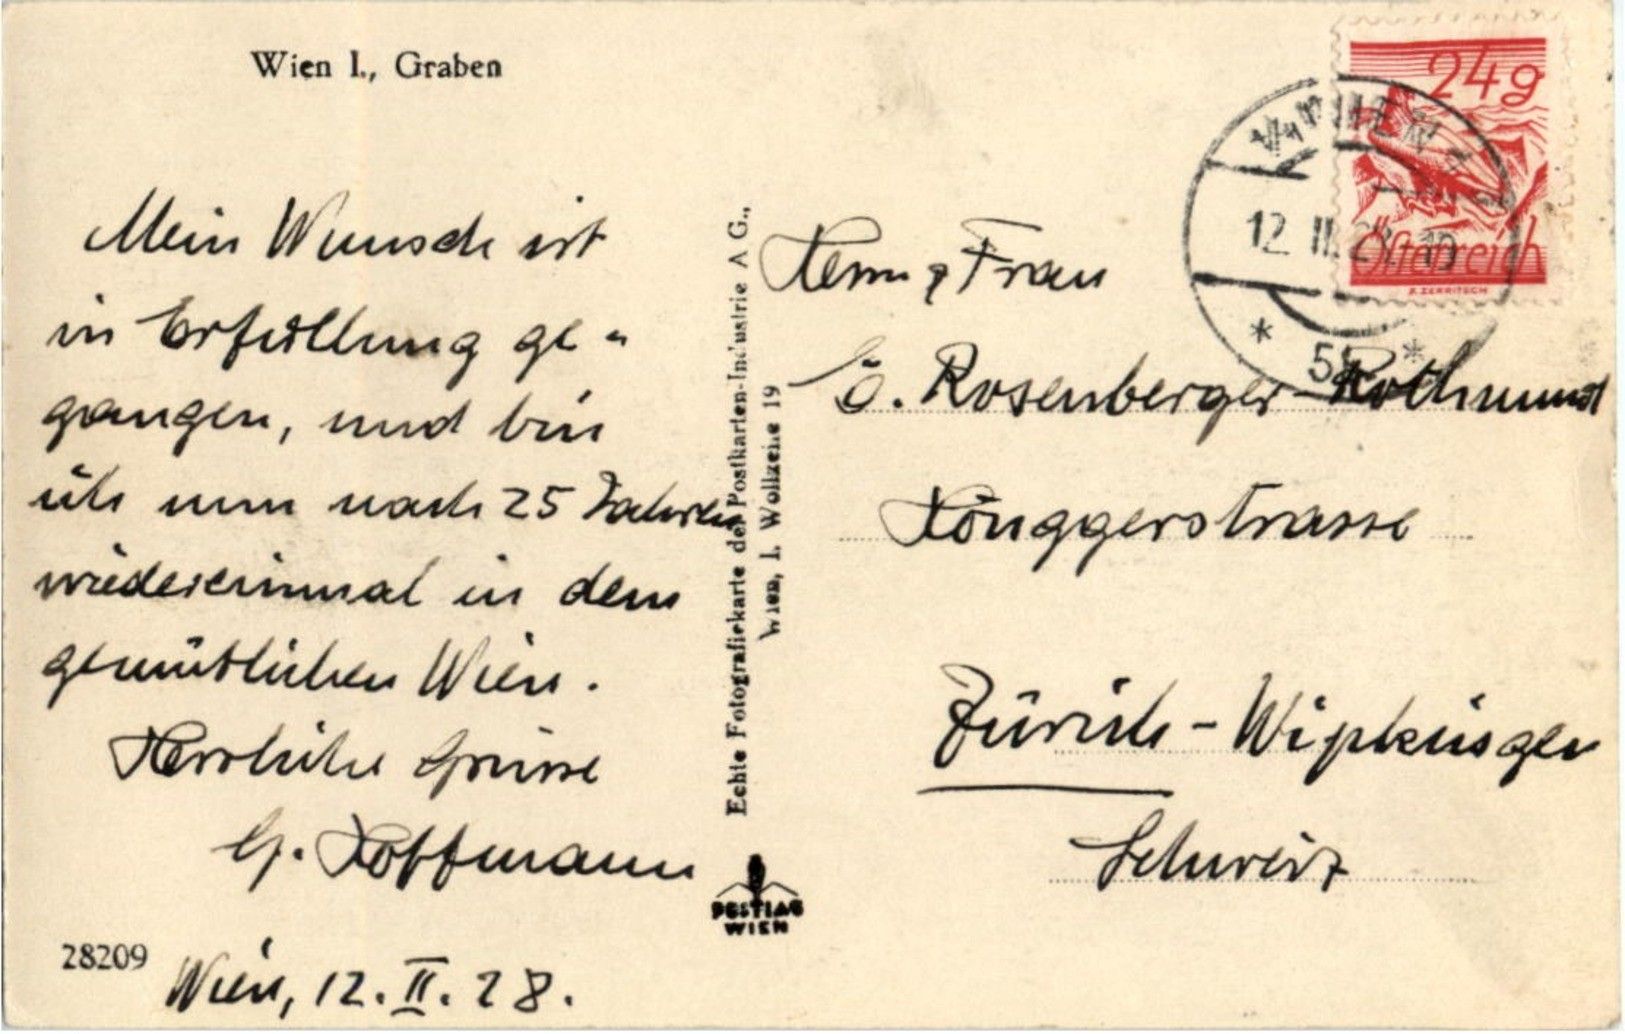 Wien I., Graben
Mein Wunsch ist
in Erfüllung ge-
gangen, und bin
ich nun nach 25 Jahren
wiedereinmal in dem
gemütlichen Wien.
Herzliche Grüsse
G. Hoffmann
28209
Wien, 12. II. 28.
Echte Fotografiekarte der Postkarten-Industrie A G.,
Wien, I. Wollzeile 19
POSTIAG
WIEN
24g
Österreich
12 II. 28. 10
* 5 *
Herrn & Frau
E. Rosenberger-Rothmund
Hönggerstrasse
Zürich-Wipkingen
Schweiz